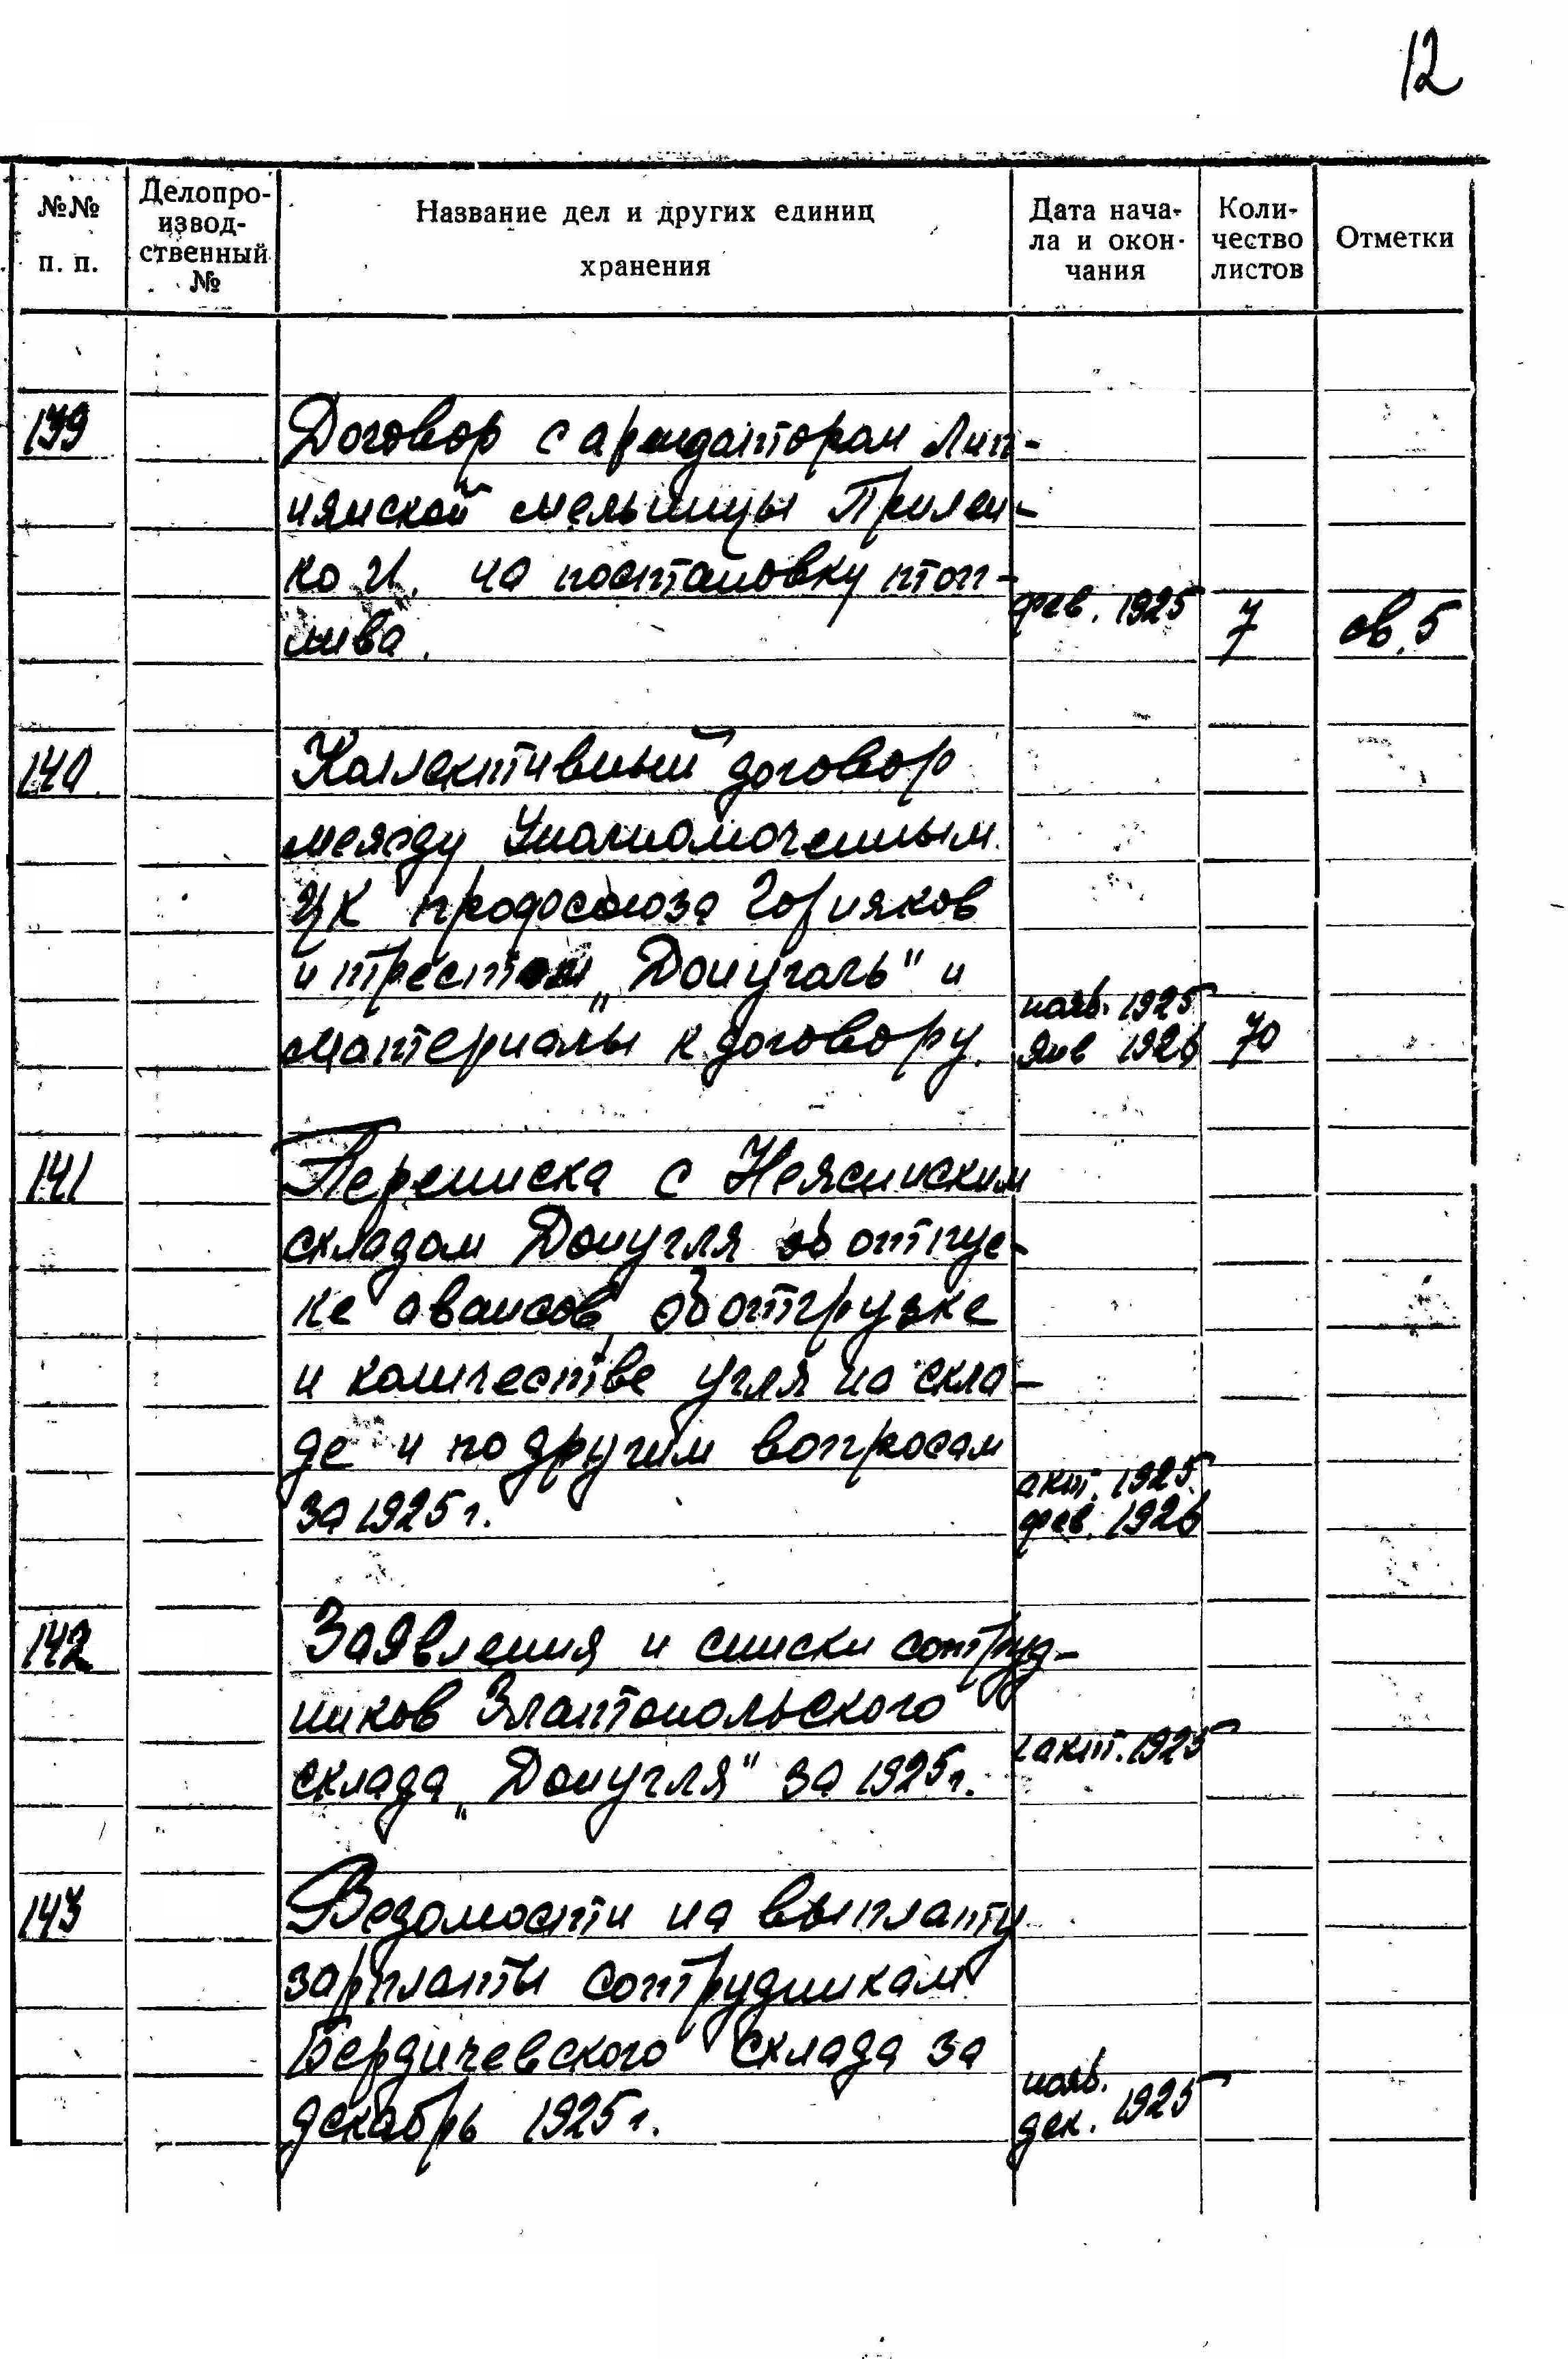 12
№№ п. п.
Делопро-
извод-
ственный
№
Название дел и других единиц
хранения
Дата нача-
ла и окон-
чания
Коли-
чество
листов
Отметки
139
Договор с арендатором Лип-
нянской мельницы Прилен-
ко И. на поставку топ-
лива.
фев. 1925
7
св. 5
140
Коллективный договор
между Уполномоченным
ЦК профсоюза Горняков
и трестом „Донуголь" и
материалы к договору.
нояб. 1925
янв 1926
70
141
Переписка с
складом Донугля об отпус-
ке авансов, об отгрузке
и количестве угля на скла-
де и по другим вопросам
за 1925 г.
окт. 1925
фев. 1926
142
Заявления и списки сотруд-
ников Златопольского
склада „Донугля" за 1925 г.
окт. 1925
143
Ведомости на выплату
зарплаты сотрудникам
Бердичевского склада за
декабрь 1925 г.
нояб.
дек. 1925